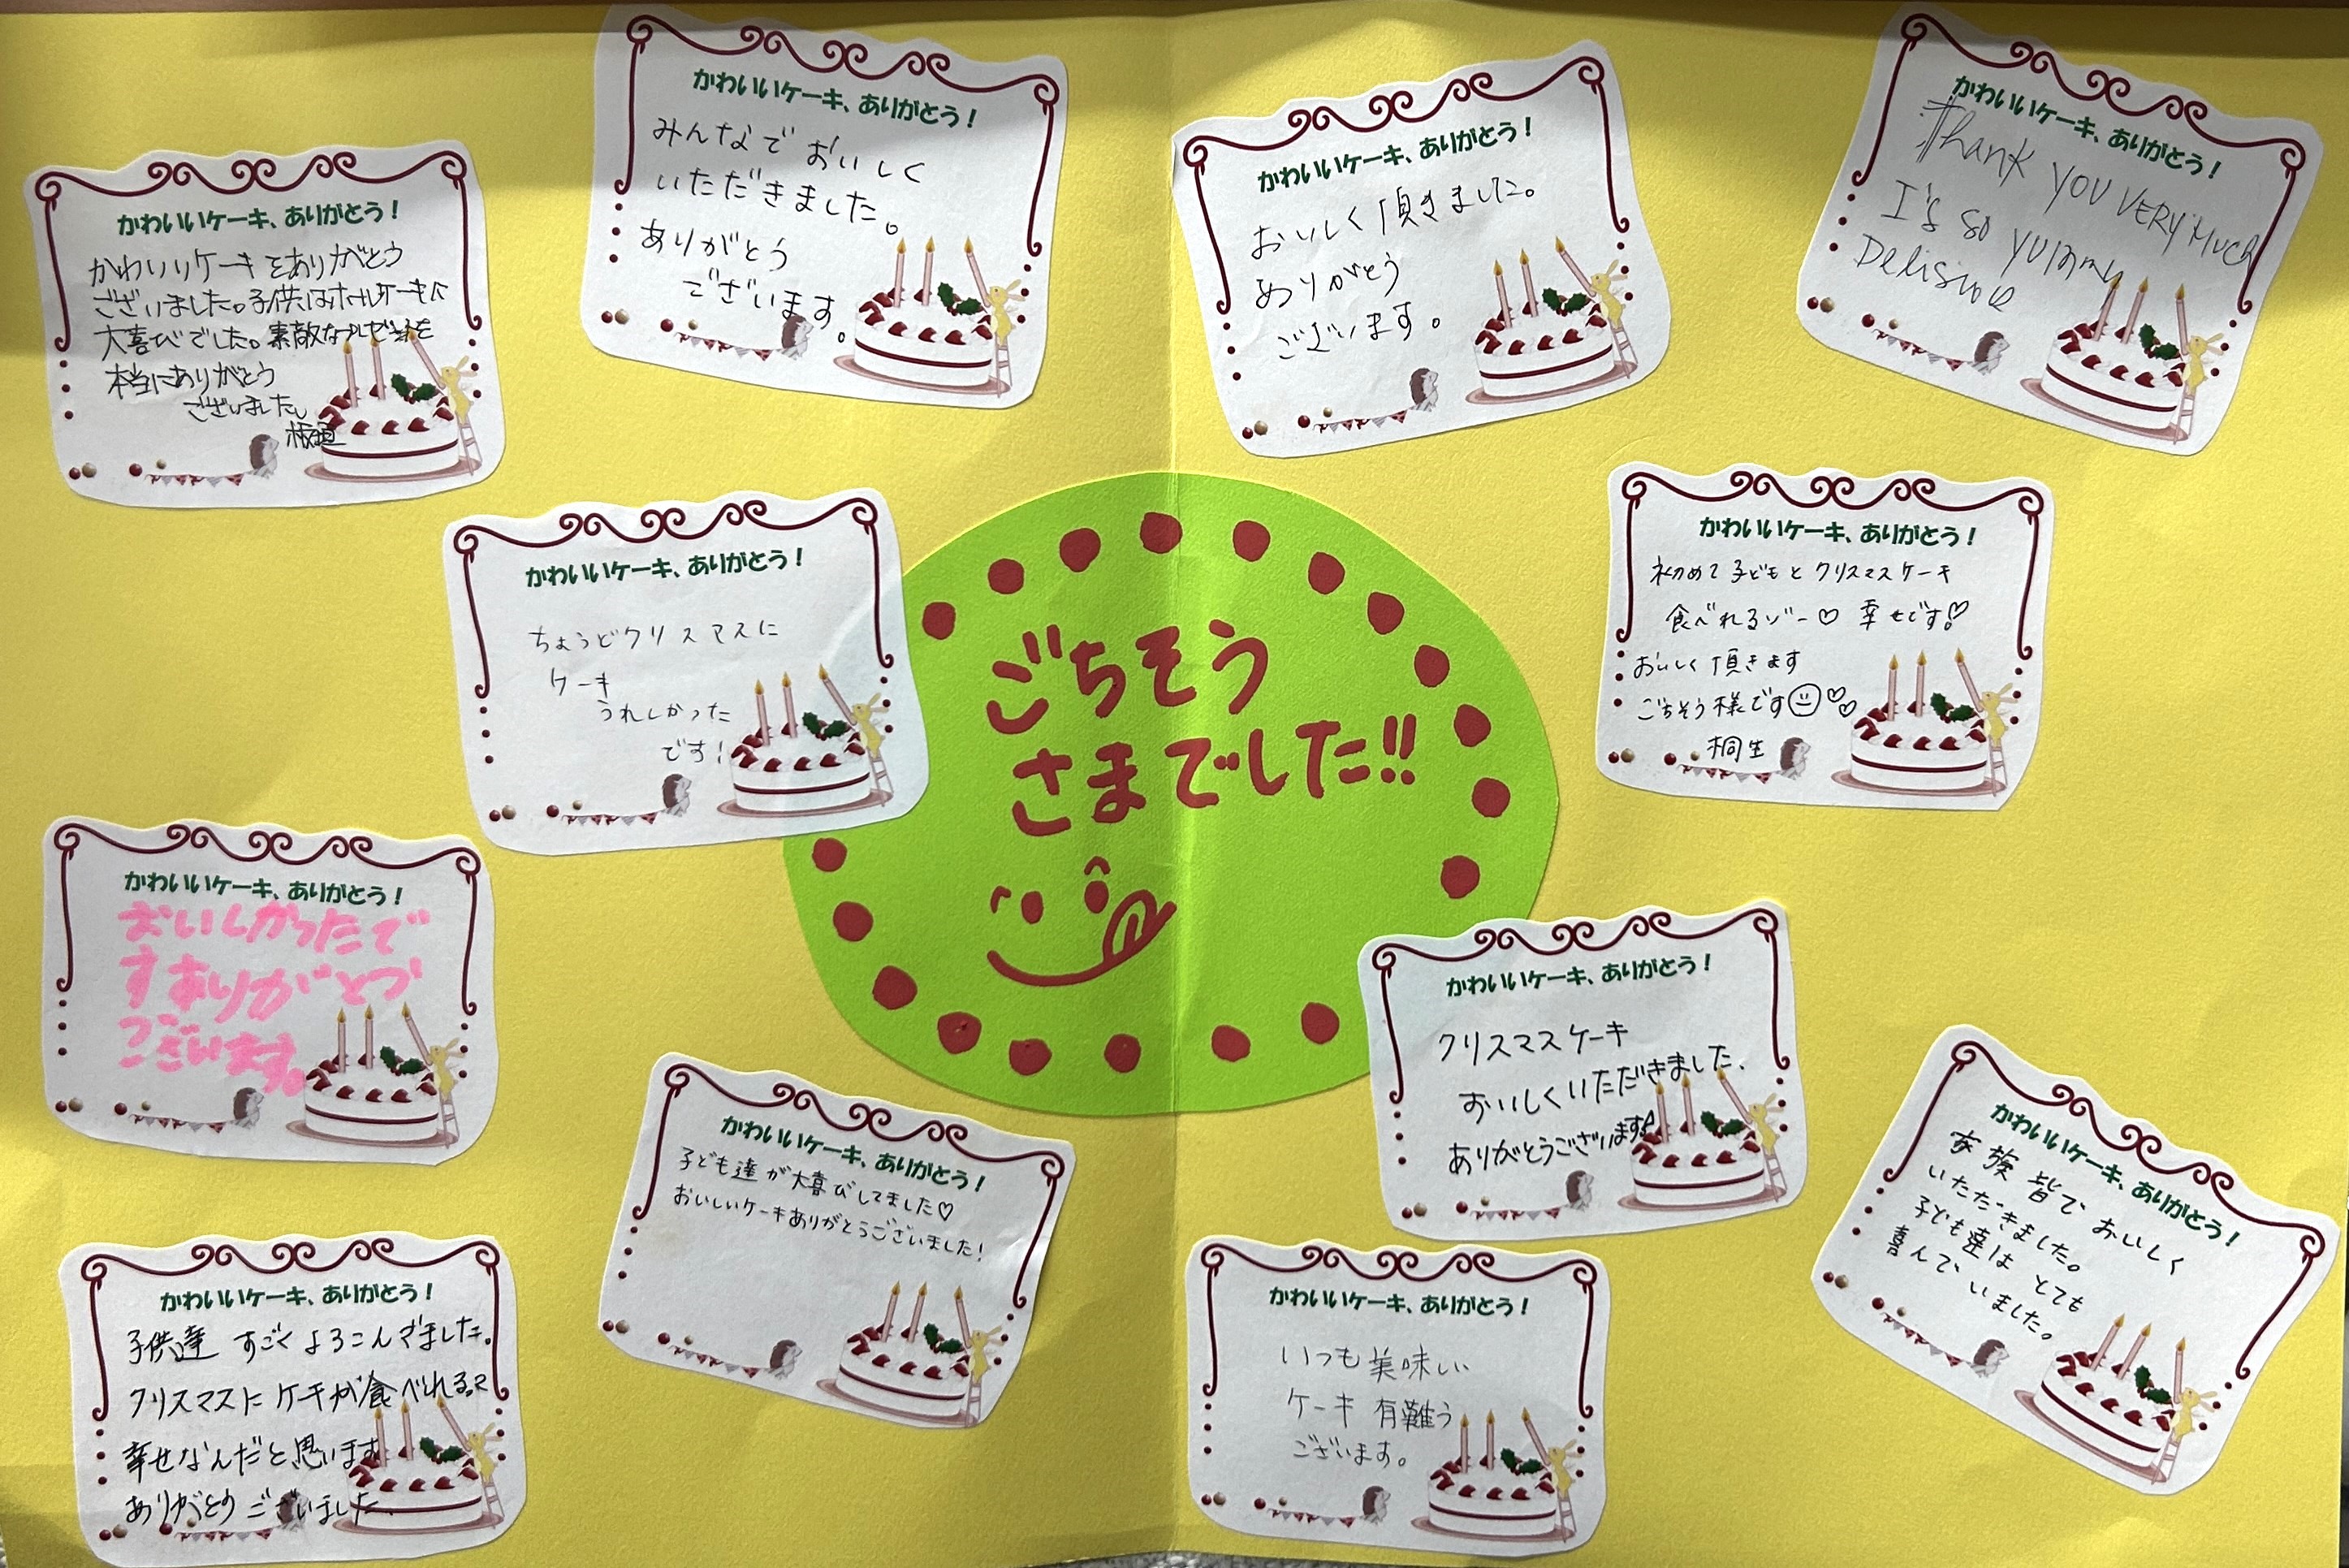 かわいいケーキ、ありがとう！
かわいいケーキをありがとう
ございました。子供はホールケーキに
大喜びでした。素敵なプレゼントを
本当にありがとう
ございました。
板垣
かわいいケーキ、ありがとう！
みんなで おいしく
いただきました。
ありがとう
ございます。
かわいいケーキ、ありがとう！
おいしく頂きました。
ありがとう
ございます。
かわいいケーキ、ありがとう！
Thank YOU VERY MUCH
I's so yummy
Delisiove
かわいいケーキ、ありがとう！
ちょうどクリスマスに
ケーキ
うれしかった
です!
ごちそう
さまでした!!
かわいいケーキ、ありがとう！
初めて子どもとクリスマスケーキ
食べれるゾー♡ 幸せです!♡
おいしく頂きます
ごちそう様です☺♡♡
桐生
かわいいケーキ、ありがとう！
おいしかったで
すありがとう
ございます。
かわいいケーキ、ありがとう！
子ども達が大喜びしてました♡
おいしいケーキありがとうございました!
かわいいケーキ、ありがとう！
クリスマスケーキ
おいしくいただきました、
ありがとうございます!
かわいいケーキ、ありがとう！
家族皆でおいしく
いただきました。
子ども達は とても
喜んでいました。
かわいいケーキ、ありがとう！
子供達 すごくよろこんでました。
クリスマスに ケーキが食べれる
幸せなんだと思います
ありがとう ございました
かわいいケーキ、ありがとう！
いつも美味しい
ケーキ 有難う
ございます。